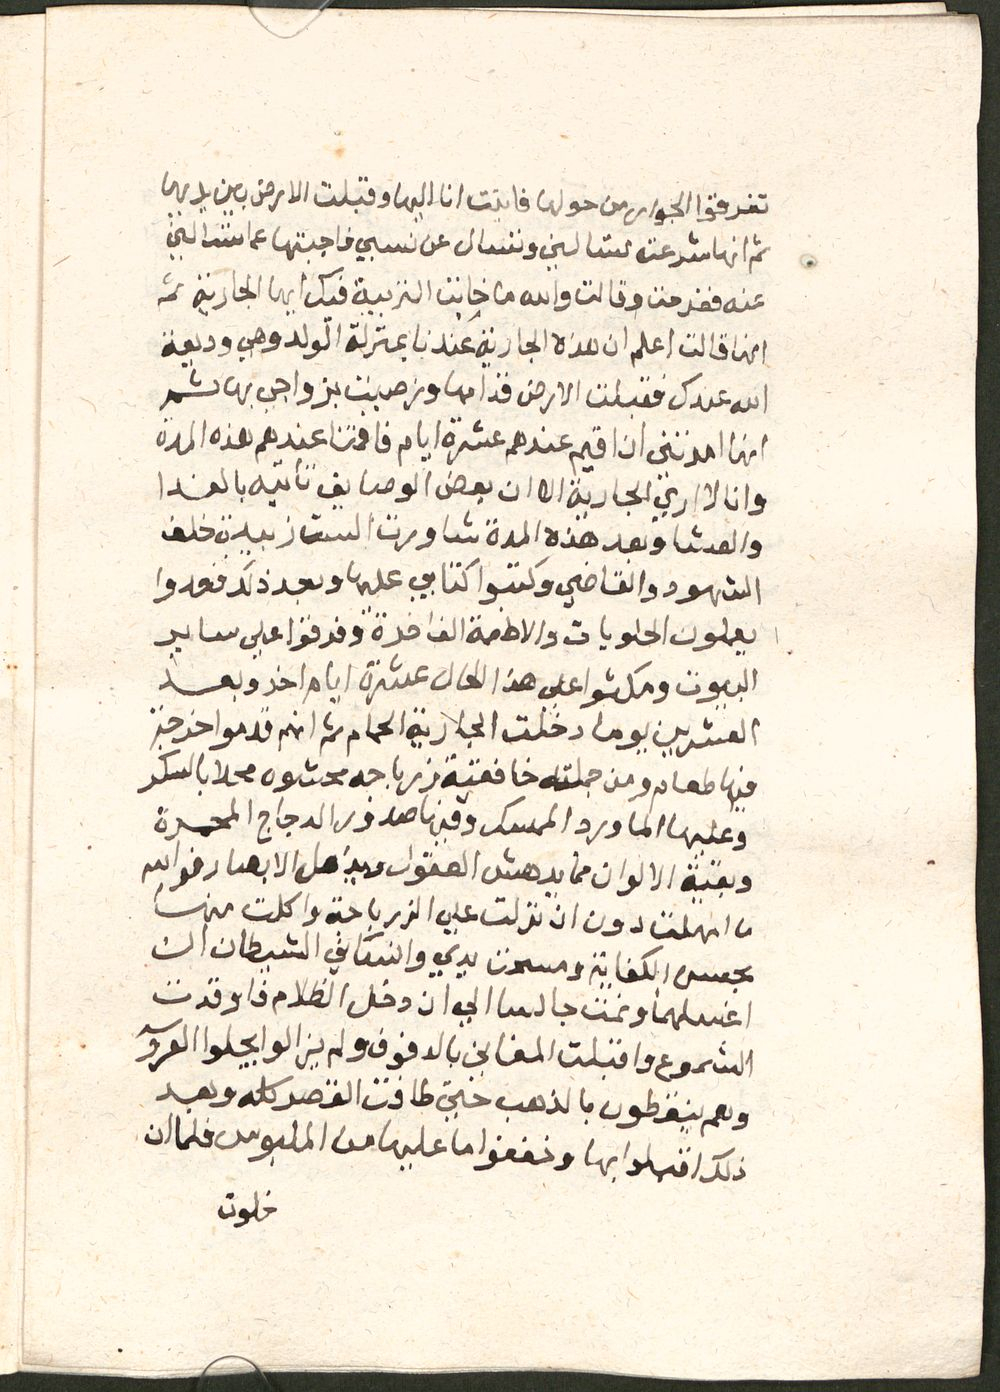 تفرقوا الجوار من حولها فاتت انا اليها وقبلت الارض بين يديها
ثم انها شرعت تسالني وتنسال عن نسبي فاجبتها عما سالتني
عنه ففرحت وقالت والله ما خابت التربية فيك ايها الجارية ثم
انها قالت اعلم ان هذه الجارية عندنا بمنزلة الولد وهي وديعة
الله عندك فقبلت الارض قدامها ورضيت بزواجي بها ثم
انها امرتني ان اقيم عندهم عشرة ايام فاقمت عندهم هذه المدة
وانا لا اري الجارية الا ان بعض الوصايف تاتيه بالغدا
والعشا وبعد هذه المدة شاورت الست زبيدة خلف
الشهود والقاضي وكتبوا كتابي عليها وبعد ذلك قعدوا
يعملون الحلويات والاطعمة الفاخرة وفرقوا علي ساير
البيوت ومكثوا علي هذا الحال عشرة ايام اخر وبعد
العشرين يوما دخلت الجارية الحمام ثم انهم قدموا
فيها طعام ومن جملته خافقية زرباجه محشوه محلا بالسكر
وعليها الماورد الممسك وفيها صدور الدجاج المحمرة
وبقية الالوان مما يدهش العقول ويذهل الابصار فوالله
ما امهلت دون ان نزلت علي الزرباجة واكلت منها
بحسب الكفاية ومسحت يدي وانساني الشيطان ان
اغسلهما وقمت جالسا الي ان دخل الظلام فاوقدت
الشموع واقبلت المغاني بالدفوف ولم يزالوا يجلوا العروس
وهم ينقطون بالذهب حتي طافت القصر كله وبعد
ذلك اقبلوا بها وخففوا ما عليها من الملبوس فلما ان
خلوت